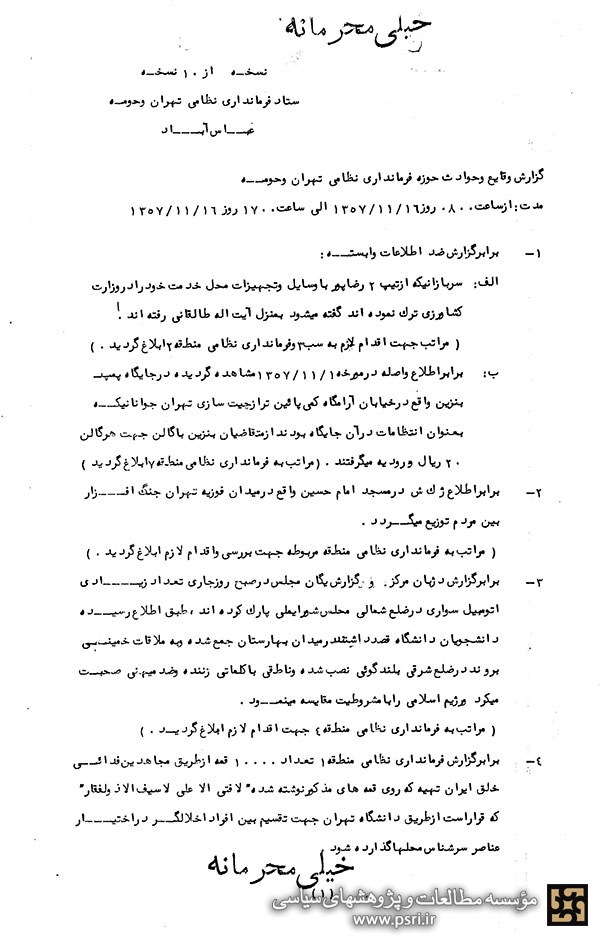 خیلی محرمانه
نسخه از ۱۰ نسخه
ستاد فرمانداری نظامی تهران وحومه
عباس آباد
گزارش وقایع وحوادث حوزه فرمانداری نظامی تهران وحومه
مدت: ازساعت ۰۸۰۰ روز ۱۳۵۷/۱۱/۱۶ الی ساعت ۱۷۰۰ روز ۱۳۵۷/۱۱/۱۶
۱- برابرگزارش ضد اطلاعات وابسته :
الف: سربازانیکه ازتیپ ۲ رضاپور باوسایل وتجهیزات محل خدمت خودرادروزارت
کشاورزی ترک نموده اند گفته میشود بمنزل آیت اله طالقانی رفته اند .
( مراتب جهت اقدام لازم به سب۳وفرمانداری نظامی منطقه ۲ابلاغ گردید . )
ب: برابراطلاع واصله درمورخه ۱۳۵۷/۱۱/۱ مشاهده گردیده درجایگاه پمپ
بنزین واقع درخیابان آرامگاه کمی پائین ترازجیت سازی تهران جوانانیکه
بعنوان انتظامات درآن جایگاه بودند ازمتقاضیان بنزین باگالن جهت هرگالن
۲۰ ریال ورودیه میگرفتند . (مراتب به فرمانداری نظامی منطقه ۷ابلاغ گردید )
۲- برابراطلاع ژ ک ش درمسجد امام حسین واقع درمیدان فوزیه تهران جنگ افزار
بین مردم توزیع میگردد .
( مراتب به فرمانداری نظامی منطقه مربوطه جهت بررسی واقدام لازم ابلاغ گردید . )
۳- برابرگزارش دژبان مرکز و گزارش یگان مجلس درصبح روزجاری تعداد زیادی
اتومبیل سواری درضلع شمالی مجلس شورایملی پارک کرده اند ، طبق اطلاع رسیده
دانشجویان دانشگاه قصد داشتند درمیدان بهارستان جمع شده وبه ملاقات خمینی
بروند درضلع شرقی بلندگوئی نصب شده وناطقی باکلماتی زننده وضد میهنی صحبت
میکرد ورژیم اسلامی رابا مشروطیت مقایسه مینمود .
( مراتب به فرمانداری نظامی منطقه ٤ جهت اقدام لازم ابلاغ گردید . )
٤- برابرگزارش فرمانداری نظامی منطقه ۱ تعداد ۱۰۰۰۰ قمه ازطریق مجاهدین فدائی
خلق ایران تهیه که روی قمه های مذکور نوشته شده "لافتی الا علی لاسیف الا ذولفقار"
که قراراست ازطریق دانشگاه تهران جهت تقسیم بین افراد اخلالگر دراختیار
عناصر سرشناس محلها گذارده شود .
خیلی محرمانه
(۱)
مؤسسه مطالعات و پژوهشهای سیاسی
www.psri.ir